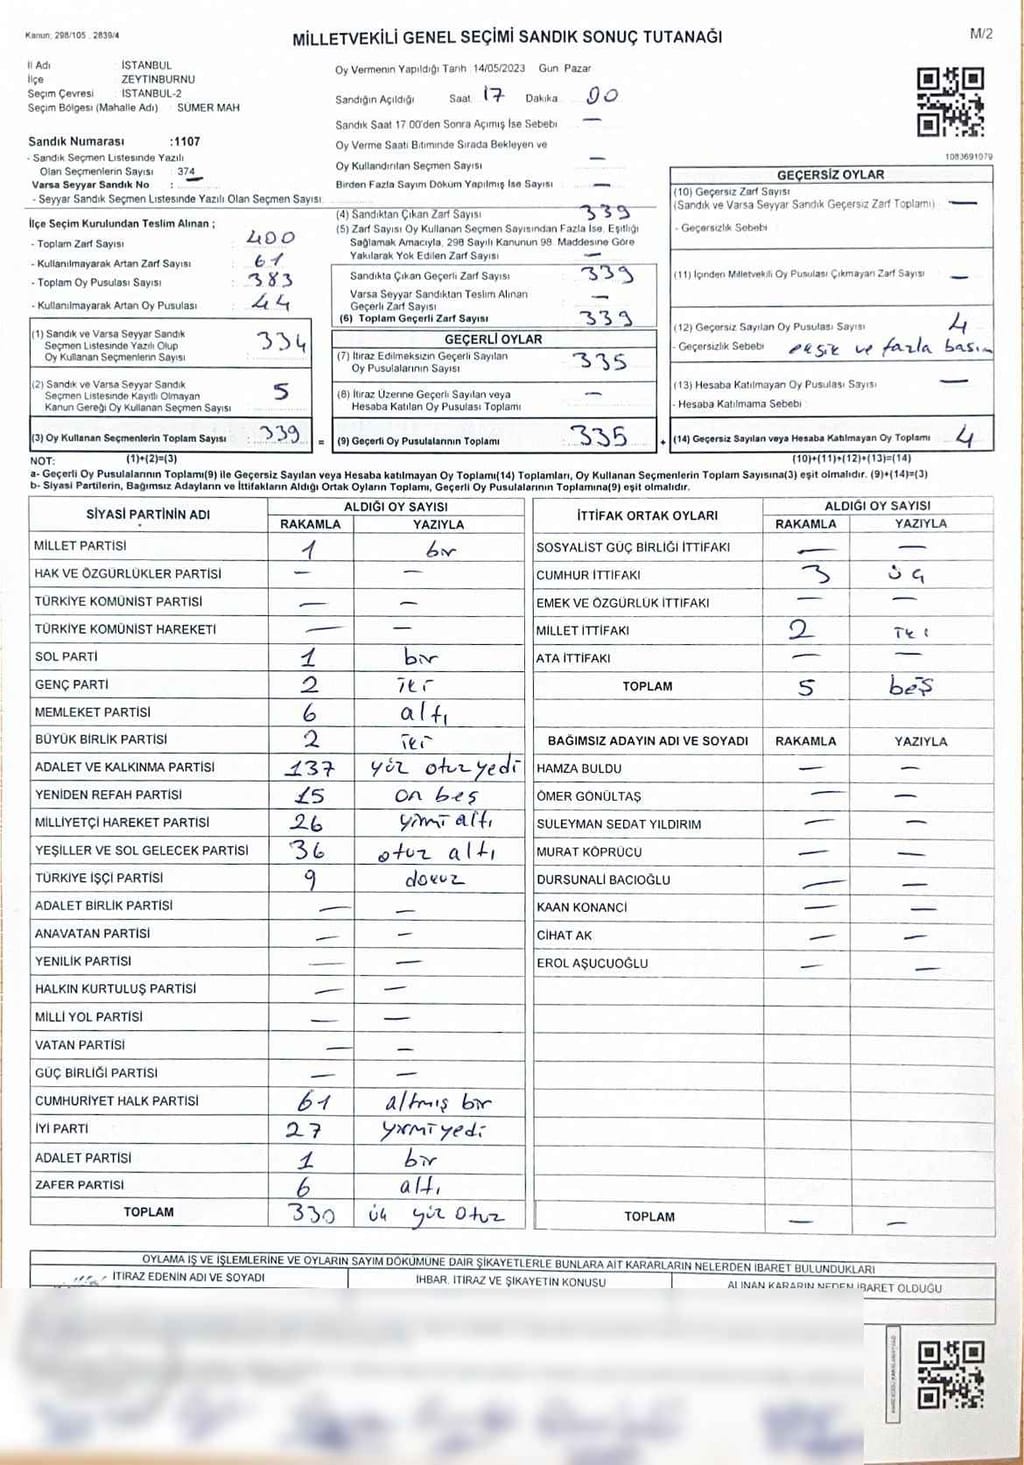 Kanun; 298/105 . 2839/4
MİLLETVEKİLİ GENEL SEÇİMİ SANDIK SONUÇ TUTANAĞI
M/2
İl Adı İSTANBUL
İlçe ZEYTİNBURNU
Seçim Çevresi İSTANBUL-2
Seçim Bölgesi (Mahalle Adı) SÜMER MAH
Sandık Numarası :1107
- Sandık Seçmen Listesinde Yazılı
Olan Seçmenlerin Sayısı 374
Varsa Seyyar Sandık No :
- Seyyar Sandık Seçmen Listesinde Yazılı Olan Seçmen Sayısı:
Oy Vermenin Yapıldığı Tarih 14/05/2023 Gün Pazar
Sandığın Açıldığı Saat 17 Dakika 00
Sandık Saat 17 00'den Sonra Açılmış İse Sebebi —
Oy Verme Saati Bitiminde Sırada Bekleyen ve
Oy Kullandırılan Seçmen Sayısı —
Birden Fazla Sayım Döküm Yapılmış İse Sayısı —
1083691079
İlçe Seçim Kurulundan Teslim Alınan ;
- Toplam Zarf Sayısı : 400
- Kullanılmayarak Artan Zarf Sayısı : 61
- Toplam Oy Pusulası Sayısı : 383
- Kullanılmayarak Artan Oy Pusulası : 44
(1) Sandık ve Varsa Seyyar Sandık
Seçmen Listesinde Yazılı Olup
Oy Kullanan Seçmenlerin Sayısı 334
(2) Sandık ve Varsa Seyyar Sandık
Seçmen Listesinde Kayıtlı Olmayan
Kanun Gereği Oy Kullanan Seçmen Sayısı 5
(3) Oy Kullanan Seçmenlerin Toplam Sayısı : 339 =
(4) Sandıktan Çıkan Zarf Sayısı 339
(5) Zarf Sayısı Oy Kullanan Seçmen Sayısından Fazla İse, Eşitliği
Sağlamak Amacıyla, 298 Sayılı Kanunun 98. Maddesine Göre
Yakılarak Yok Edilen Zarf Sayısı —
Sandıkta Çıkan Geçerli Zarf Sayısı 339
Varsa Seyyar Sandıktan Teslim Alınan
Geçerli Zarf Sayısı —
(6) Toplam Geçerli Zarf Sayısı 339
GEÇERLİ OYLAR
(7) İtiraz Edilmeksizin Geçerli Sayılan
Oy Pusulalarının Sayısı 335
(8) İtiraz Üzerine Geçerli Sayılan veya
Hesaba Katılan Oy Pusulası Toplamı —
(9) Geçerli Oy Pusulalarının Toplamı : 335 +
GEÇERSİZ OYLAR
(10) Geçersiz Zarf Sayısı
(Sandık ve Varsa Seyyar Sandık Geçersiz Zarf Toplamı) —
- Geçersizlik Sebebi
(11) İçinden Milletvekili Oy Pusulası Çıkmayan Zarf Sayısı —
(12) Geçersiz Sayılan Oy Pusulası Sayısı 4
- Geçersizlik Sebebi eksik ve fazla basım
(13) Hesaba Katılmayan Oy Pusulası Sayısı —
- Hesaba Katılmama Sebebi
(14) Geçersiz Sayılan veya Hesaba Katılmayan Oy Toplamı 4
NOT: (1)+(2)=(3) (10)+(11)+(12)+(13)=(14)
a- Geçerli Oy Pusulalarının Toplamı(9) ile Geçersiz Sayılan veya Hesaba katılmayan Oy Toplamı(14) Toplamları, Oy Kullanan Seçmenlerin Toplam Sayısına(3) eşit olmalıdır. (9)+(14)=(3)
b- Siyasi Partilerin, Bağımsız Adayların ve İttifakların Aldığı Ortak Oyların Toplamı, Geçerli Oy Pusulalarının Toplamına(9) eşit olmalıdır.
SİYASİ PARTİNİN ADI ALDIĞI OY SAYISI
RAKAMLA YAZIYLA
MİLLET PARTİSİ 1 bir
HAK VE ÖZGÜRLÜKLER PARTİSİ — —
TÜRKİYE KOMÜNİST PARTİSİ — —
TÜRKİYE KOMÜNİST HAREKETİ — —
SOL PARTİ 1 bir
GENÇ PARTİ 2 iki
MEMLEKET PARTİSİ 6 altı
BÜYÜK BİRLİK PARTİSİ 2 iki
ADALET VE KALKINMA PARTİSİ 137 yüz otuz yedi
YENİDEN REFAH PARTİSİ 15 on beş
MİLLİYETÇİ HAREKET PARTİSİ 26 yirmi altı
YEŞİLLER VE SOL GELECEK PARTİSİ 36 otuz altı
TÜRKİYE İŞÇİ PARTİSİ 9 dokuz
ADALET BİRLİK PARTİSİ — —
ANAVATAN PARTİSİ — —
YENİLİK PARTİSİ — —
HALKIN KURTULUŞ PARTİSİ — —
MİLLİ YOL PARTİSİ — —
VATAN PARTİSİ — —
GÜÇ BİRLİĞİ PARTİSİ — —
CUMHURİYET HALK PARTİSİ 61 altmış bir
İYİ PARTİ 27 yirmi yedi
ADALET PARTİSİ 1 bir
ZAFER PARTİSİ 6 altı
TOPLAM 330 üç yüz otuz
İTTİFAK ORTAK OYLARI ALDIĞI OY SAYISI
RAKAMLA YAZIYLA
SOSYALİST GÜÇ BİRLİĞİ İTTİFAKI — —
CUMHUR İTTİFAKI 3 üç
EMEK VE ÖZGÜRLÜK İTTİFAKI — —
MİLLET İTTİFAKI 2 iki
ATA İTTİFAKI — —
TOPLAM 5 beş
BAĞIMSIZ ADAYIN ADI VE SOYADI RAKAMLA YAZIYLA
HAMZA BULDU — —
ÖMER GÖNÜLTAŞ — —
SÜLEYMAN SEDAT YILDIRIM — —
MURAT KÖPRÜCÜ — —
DURSUNALİ BACIOĞLU — —
KAAN KONANCİ — —
CİHAT AK — —
EROL AŞUCUOĞLU — —
TOPLAM — —
OYLAMA İŞ VE İŞLEMLERİNE VE OYLARIN SAYIM DÖKÜMÜNE DAİR ŞİKAYETLERLE BUNLARA AİT KARARLARIN NELERDEN İBARET BULUNDUKLARI
İTİRAZ EDENİN ADI VE SOYADI İHBAR, İTİRAZ VE ŞİKAYETİN KONUSU ALINAN KARARIN NEDEN İBARET OLDUĞU